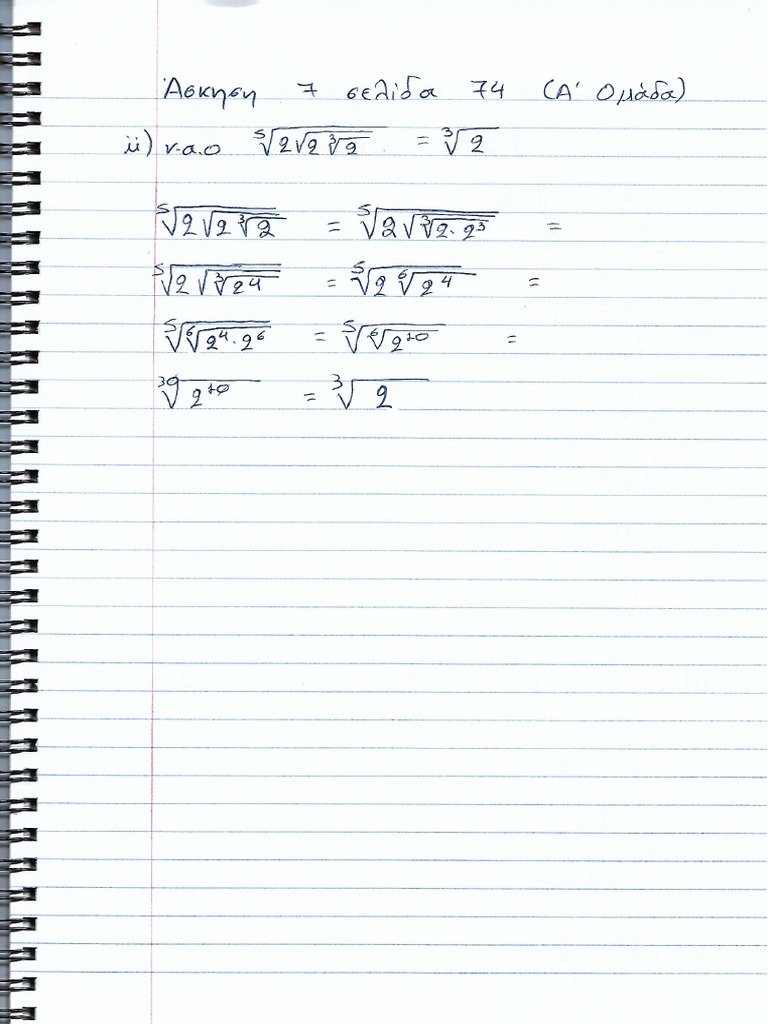 Άσκηση 7 σελίδα 74 (Α' Ομάδα)
ii) ν.α.ο ⁵√(2√(2∛2)) = ∛2
⁵√(2√(2∛2)) = ⁵√(2√(∛(2·2³))) =
⁵√(2√(∛(2⁴))) = ⁵√(2⁶√(2⁴)) =
⁵√(⁶√(2⁴·2⁶)) = ⁵√(⁶√(2¹⁰)) =
³⁰√(2¹⁰) = ∛2